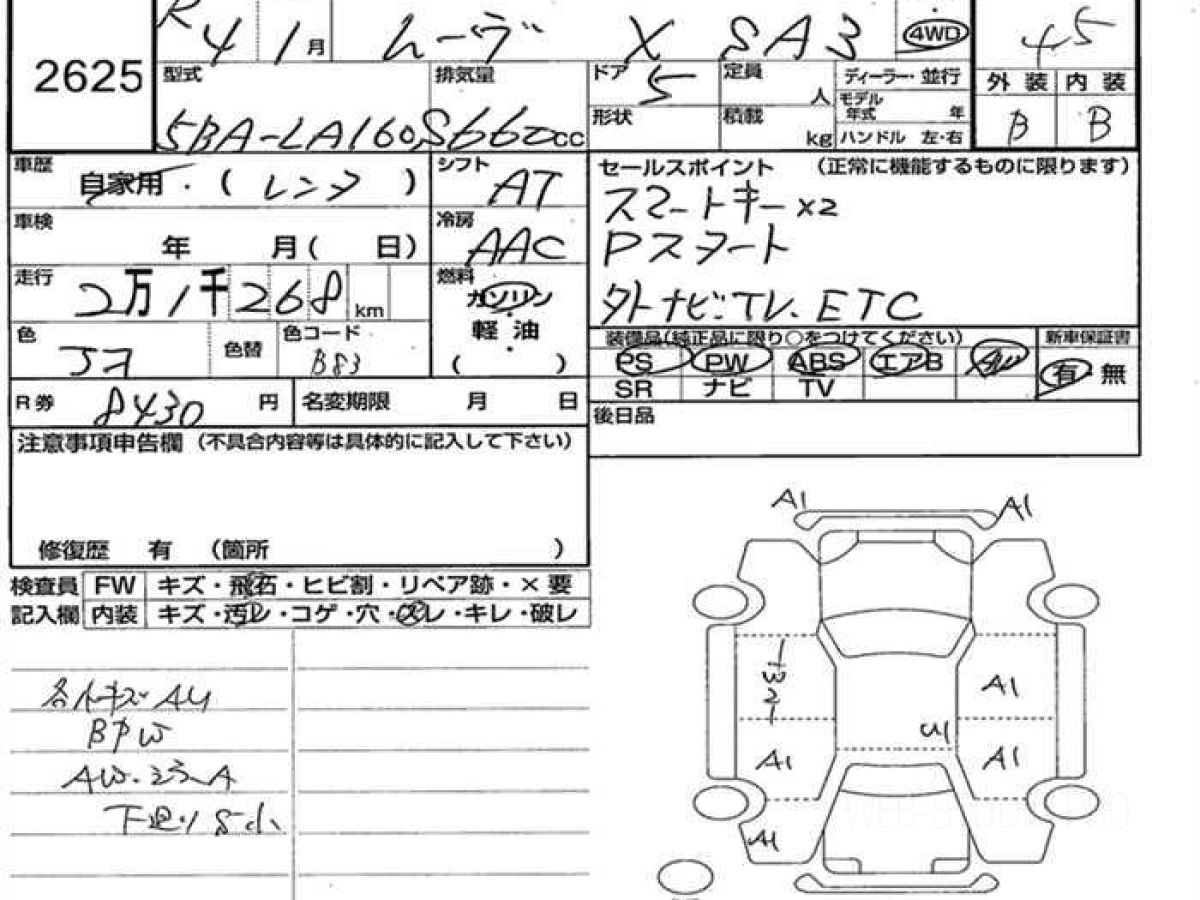 R4 1月 ムーヴ X SA3 4WD 45
2625
型式 排気量 ドア 5 定員 人 ディーラー・並行 外装 内装
5BA-LA160S 660cc 形状 積載 kg モデル年式 年 B B
ハンドル 左・右
車歴 自家用・(レンタ) シフト AT
車検 年 月( 日) 冷房 AAC
走行 2万1千268km 燃料 ガソリン
軽油
( )
色 色替 色コード B83
R券 8430円 名変期限 月 日
セールスポイント (正常に機能するものに限ります)
スマートキー×2
Pスタート
外ナビ.TV.ETC
装備品(純正品に限り○をつけてください) 新車保証書
PS PW ABS エアB AW 有 無
SR ナビ TV
後日品
注意事項申告欄(不具合内容等は具体的に記入して下さい)
修復歴 有 (箇所 )
検査員 FW キズ・飛石・ヒビ割・リペア跡・×要
記入欄 内装 キズ・汚レ・コゲ・穴・スレ・キレ・破レ
A1 A1
A1
U1
A1 A1
A1
各トキズAU
AW.
下廻りS小